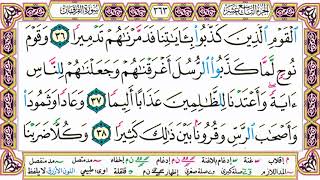 الجزء التاسع عشر ٣٦٣ سورة الفرقان
الْقَوْمِ الَّذِينَ كَذَّبُوا بِـَٔايَٰتِنَا فَدَمَّرْنَٰهُمْ تَدْمِيرًا ٣٦ وَقَوْمَ
نُوحٍ لَّمَّا كَذَّبُوا الرُّسُلَ أَغْرَقْنَٰهُمْ وَجَعَلْنَٰهُمْ لِلنَّاسِ
ءَايَةً وَأَعْتَدْنَا لِلظَّٰلِمِينَ عَذَابًا أَلِيمًا ٣٧ وَعَادًا وَثَمُودَا
وَأَصْحَٰبَ الرَّسِّ وَقُرُونًۢا بَيْنَ ذَٰلِكَ كَثِيرًا ٣٨ وَكُلًّا ضَرَبْنَا